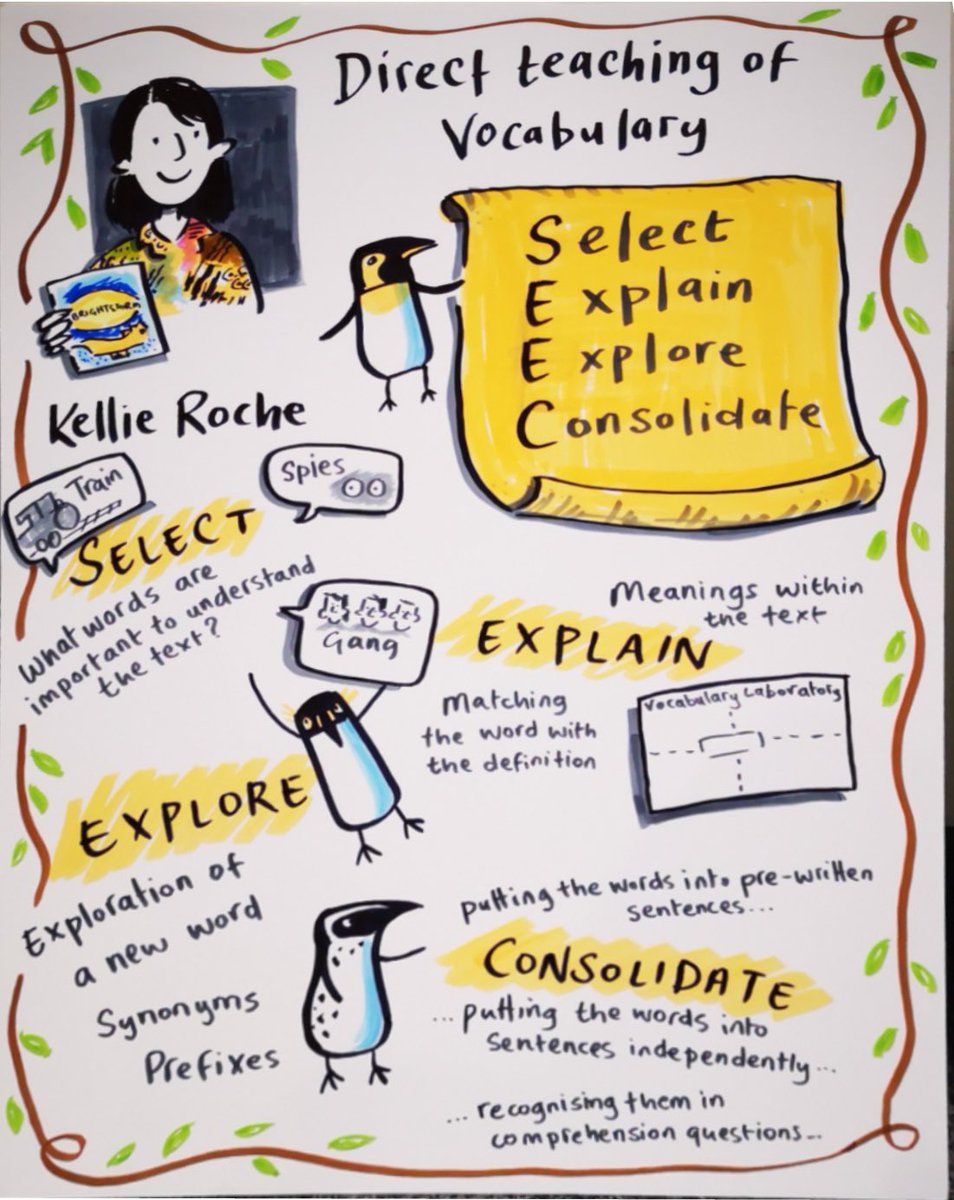 Direct teaching of
Vocabulary
BRIGHTSTORM
Select
Explain
Explore
Consolidate
Kellie Roche
Train
Spies
SELECT
What words are
important to understand
the text?
Gang
EXPLAIN
Meanings within
the text
Matching
the word with
the definition
Vocabulary Laboratory
EXPLORE
Exploration of
a new word
Synonyms
Prefixes
putting the words into pre-written
sentences...
CONSOLIDATE
...putting the words into
sentences independently...
...recognising them in
comprehension questions...